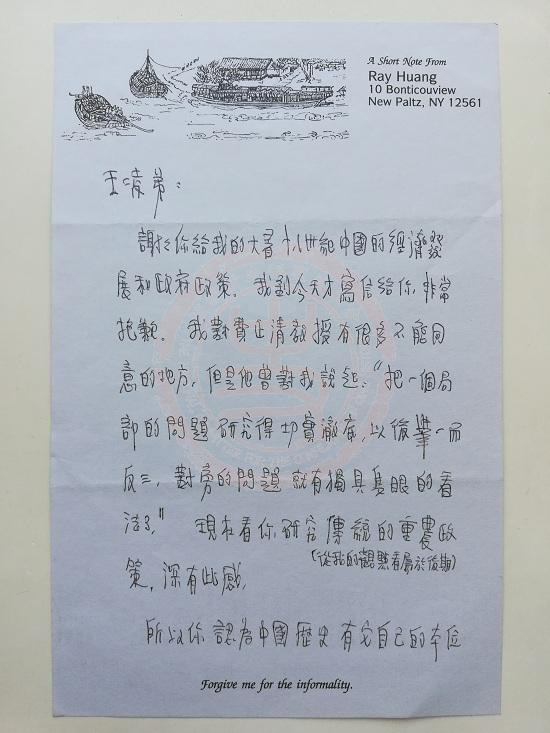 A Short Note From
Ray Huang
10 Bonticouview
New Paltz, NY 12561
王 弟：
謝謝你給我的大著十八世紀中國的經濟發
展和政府政策。我到今天才寫信給你，非常
抱歉。我對費正清教授有很多不能同
意的地方，但是他曾對我說起："把一個局
部的問題研究得切實澈底，以後舉一而
反三，對旁的問題就有獨具隻眼的看
法了。"現在看你研究傳統的重農政
（從我的觀點看屬於後期）
策，深有此感，
所以你認為中國歷史有它自己的本位
Forgive me for the informality.